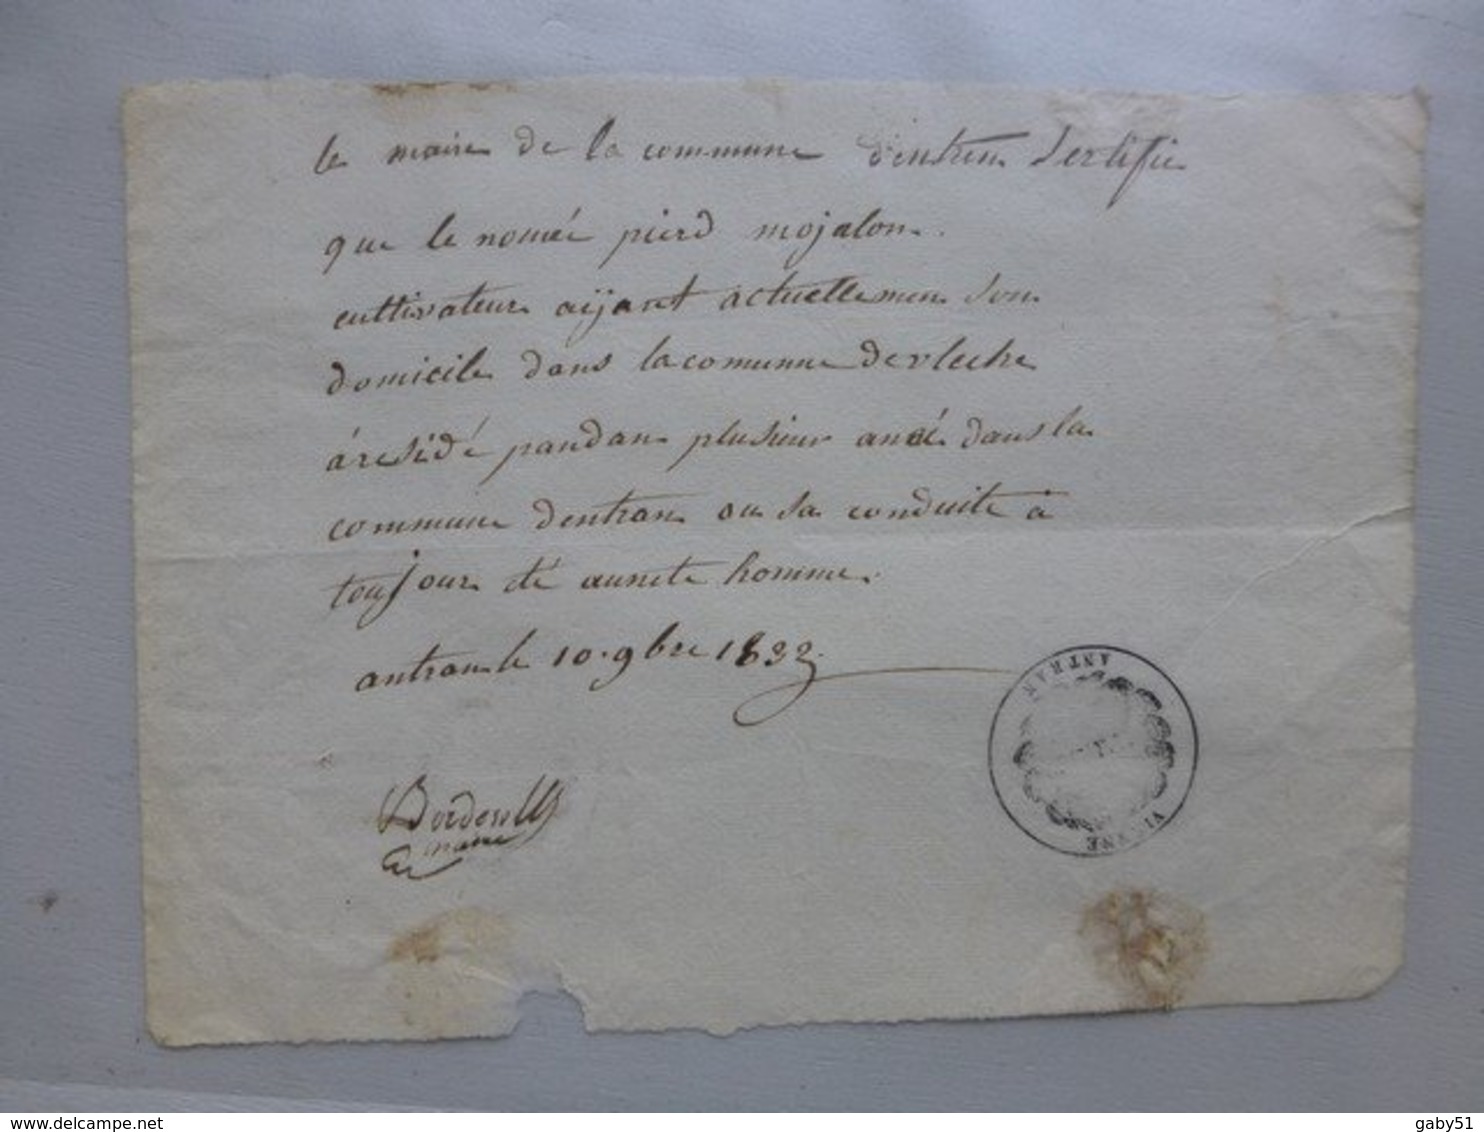 le maire de la commune d'entren Sertifie
que le nomée pierd mojalon
cultivateur aÿant actuellemen son
domicile dans la comunne de vleche
á résidé pandan plusieur aneé dans la
commune dentran ou sa conduite à
toujour été aunete homme.
antran le 10. 9bre 1832
Bordesolle
maire
ANTRAN
VIENNE
www.delcampe.net
gaby51